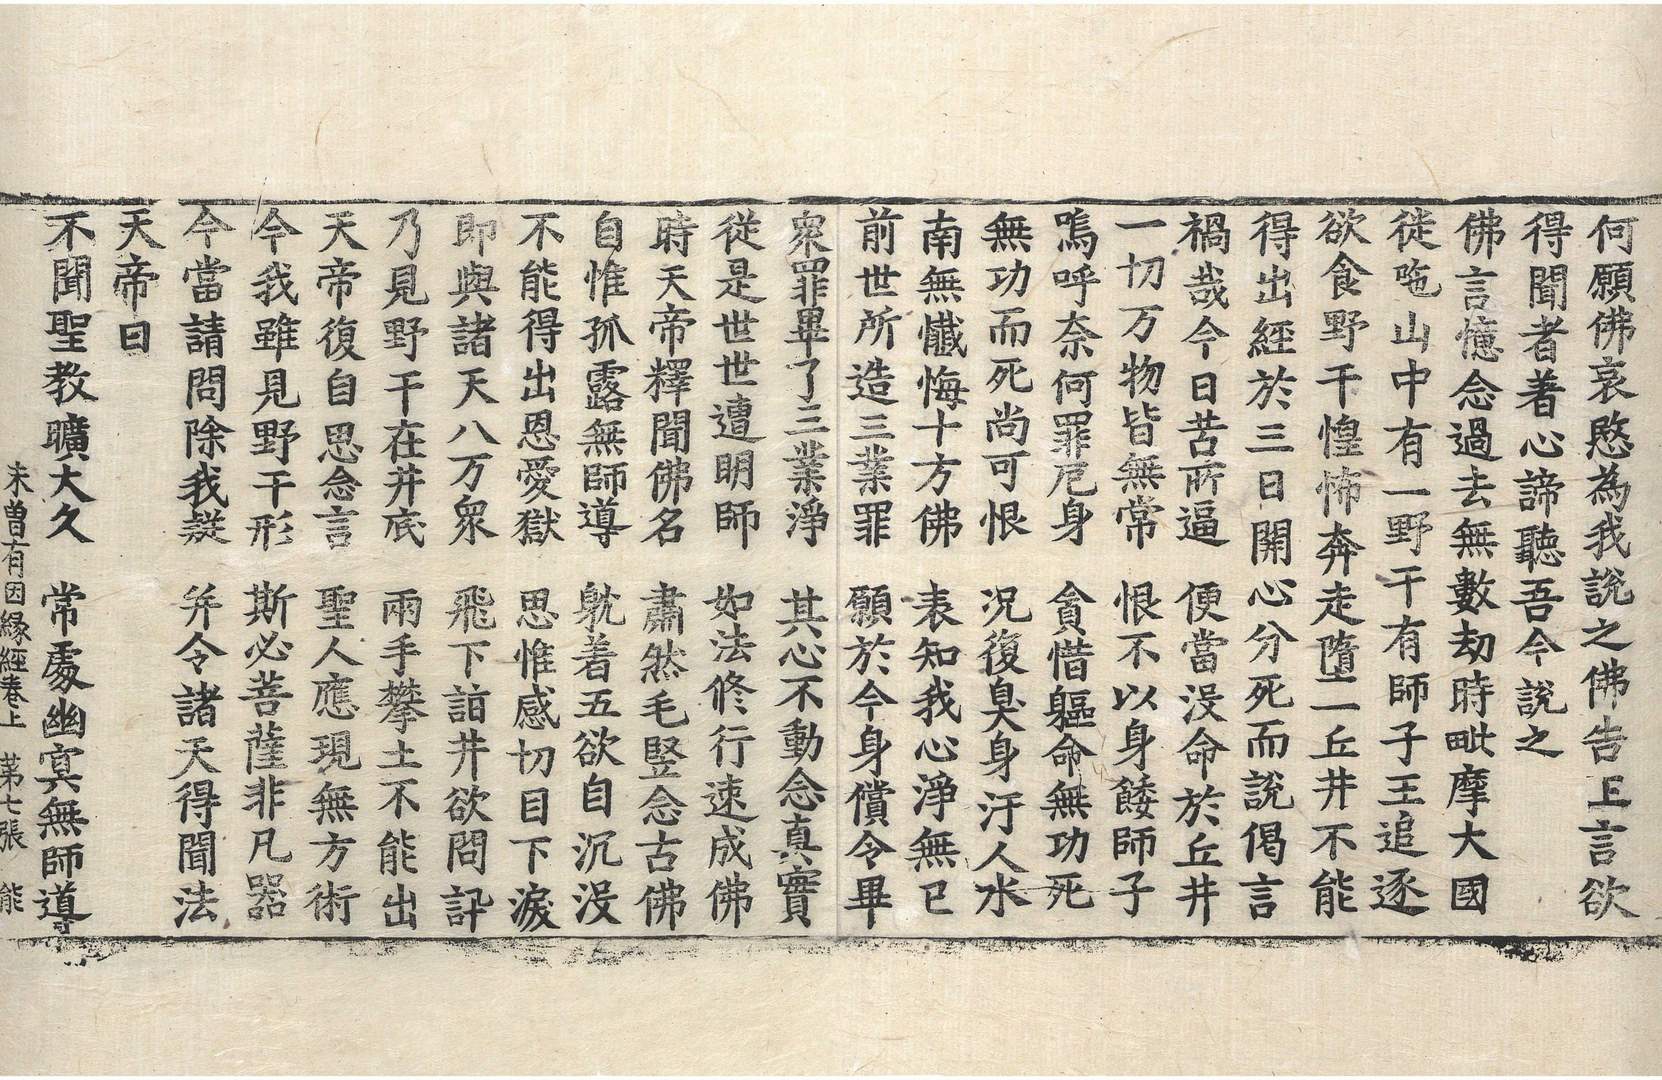 何願佛哀愍為我說之佛告王言欲
得聞者著心諦聽吾今說之
佛言憶念過去無數劫時毗摩大國
徙陁山中有一野干有師子王追逐
欲食野干惶怖奔走墮一丘井不能
得出經於三日開心分死而說偈言
禍哉今日苦所逼 便當沒命於丘井
一切万物皆無常 恨不以身餧師子
嗚呼奈何罪厄身 貪惜軀命無功死
無功而死尚可恨 況復臭身汙人水
南無懺悔十方佛 表知我心淨無已
前世所造三業罪 願於今身償令畢
衆罪畢了三業淨 其心不動念真實
從是世世遭明師 如法修行速成佛
時天帝釋聞佛名 肅然毛竪念古佛
自惟孤露無師導 躭着五欲自沉沒
不能得出恩愛獄 思惟感切目下淚
即與諸天八万衆 飛下詣井欲問訊
乃見野干在井底 兩手攀土不能出
天帝復自思念言 聖人應現無方術
今我雖見野干形 斯必菩薩非凡器
今當請問除我疑 并令諸天得聞法
天帝曰
不聞聖教曠大久 常處幽冥無師導
未曾有因緣經卷上 第七張 能